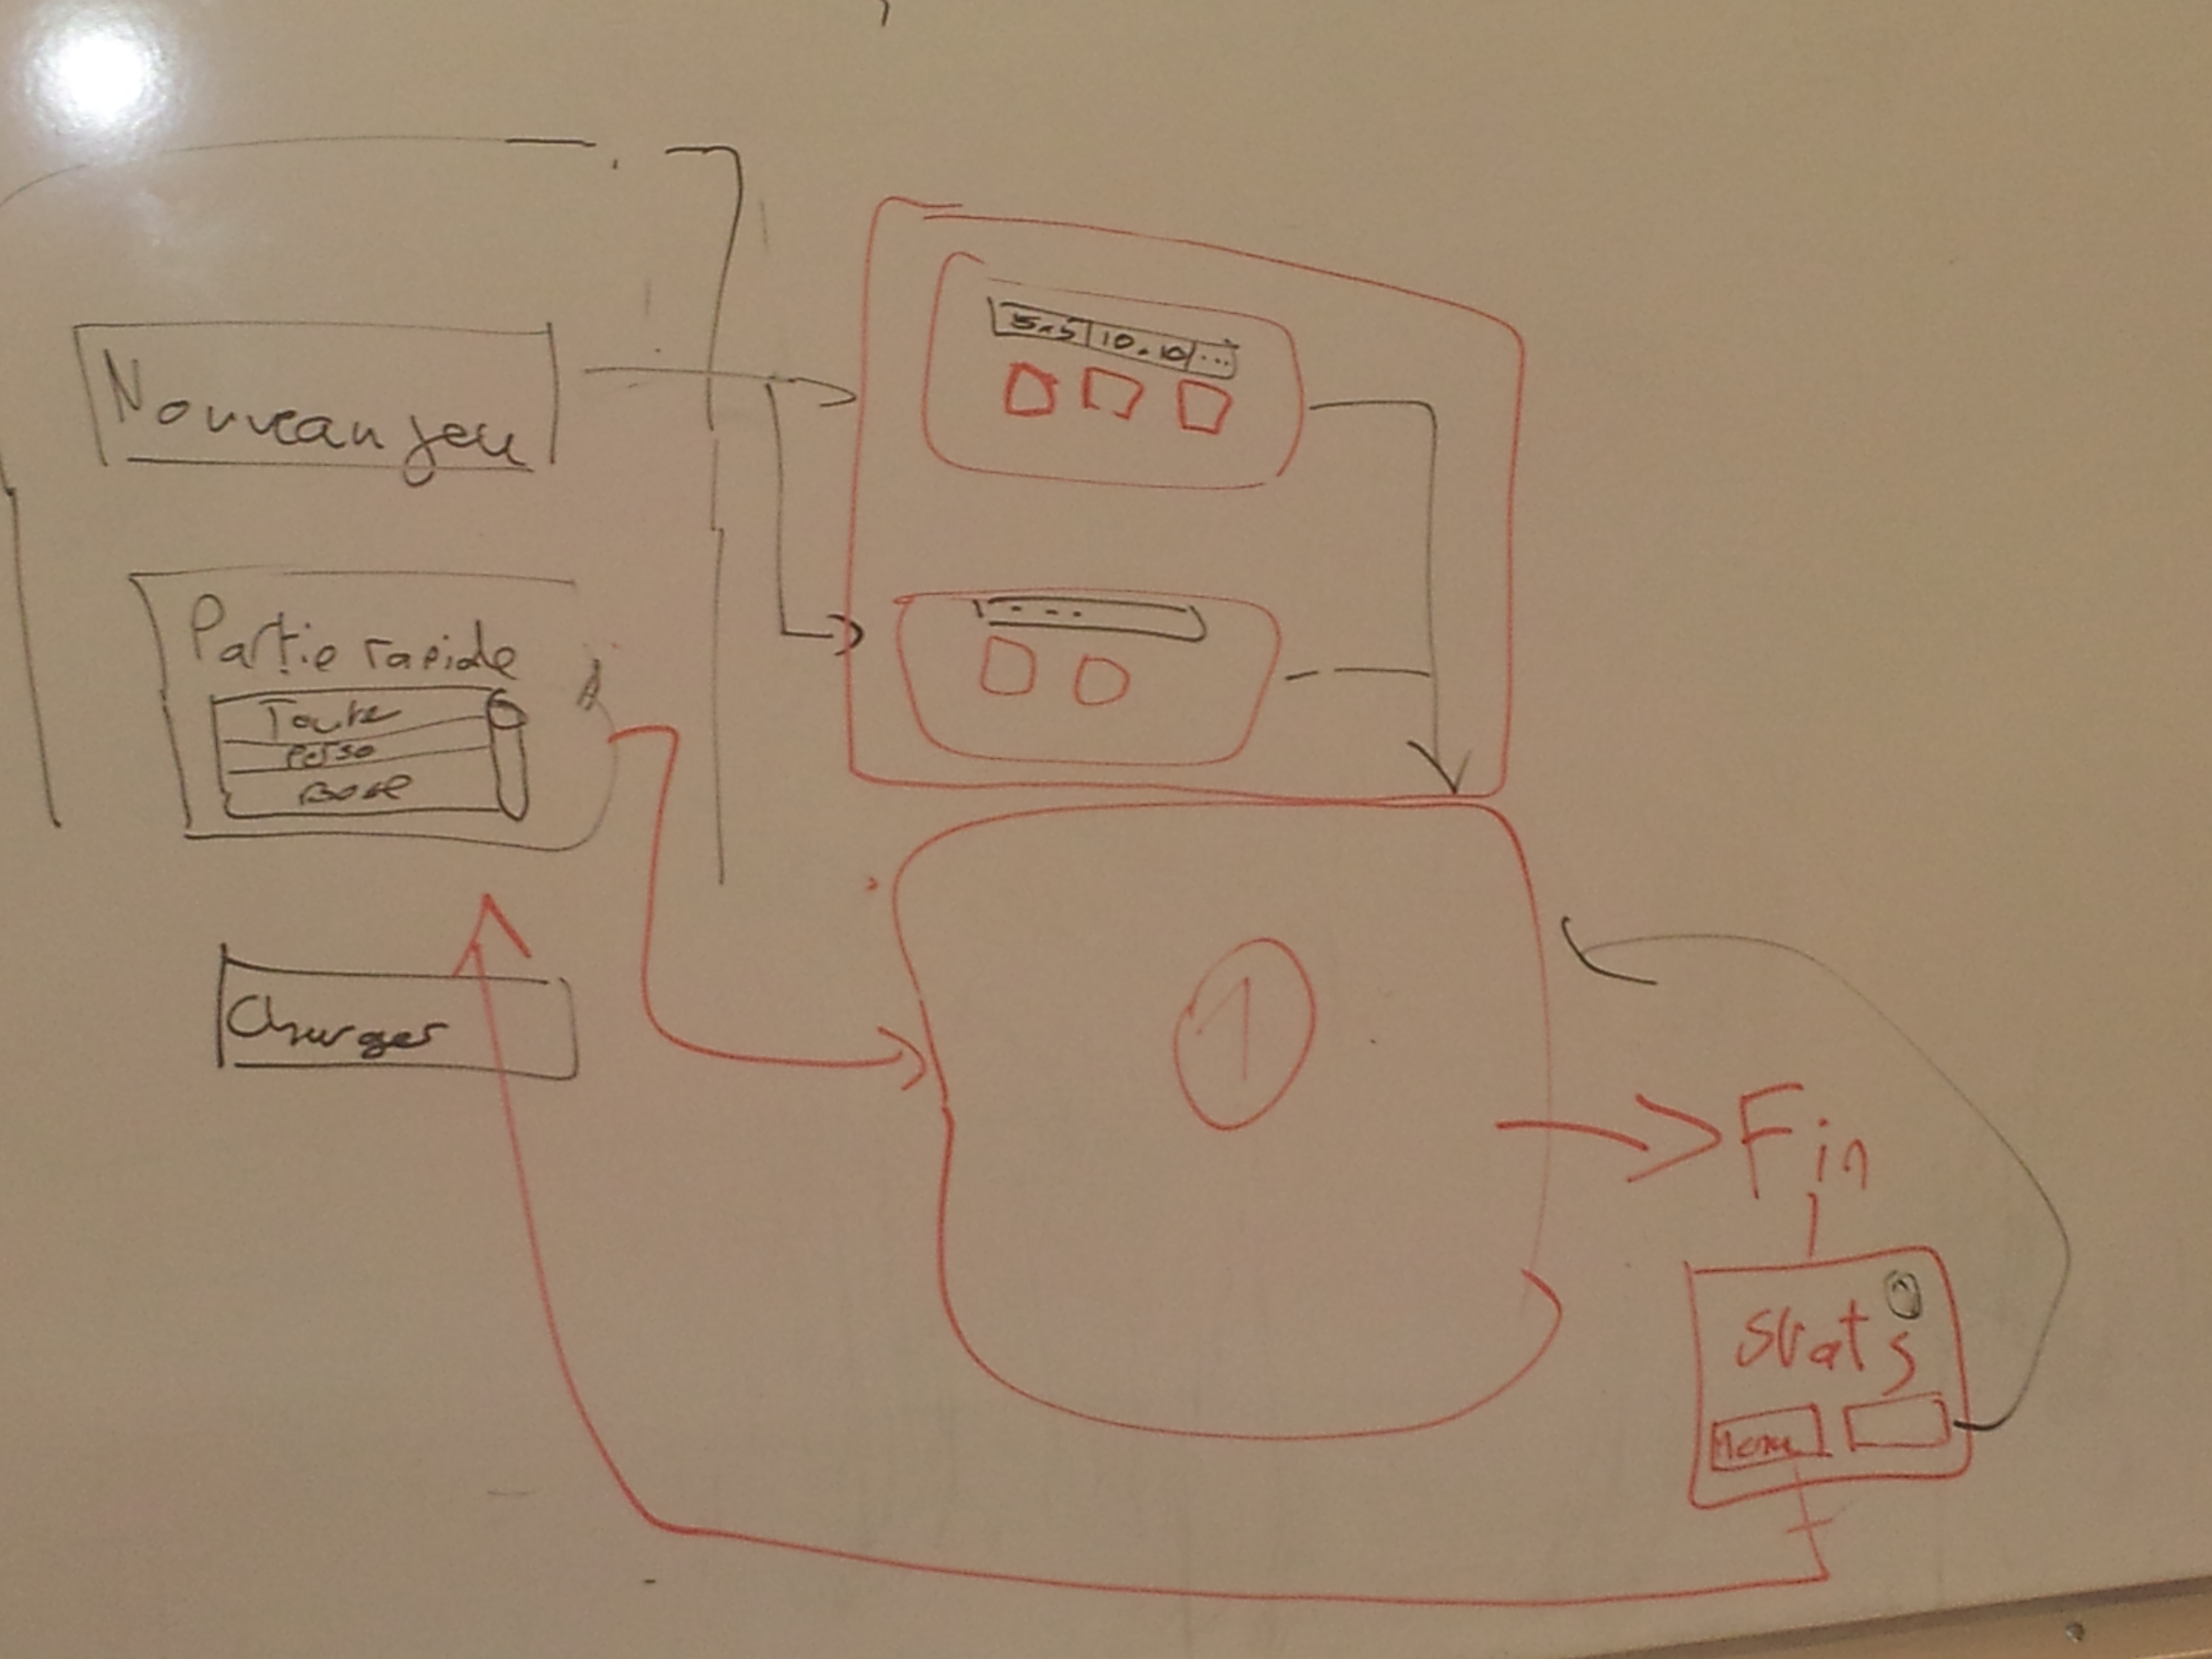 Nouveau jeu
Partie rapide
Toute
Perso
Base
Charger
5x5 10.10 ...
...
1
Fin
Stats
Menu